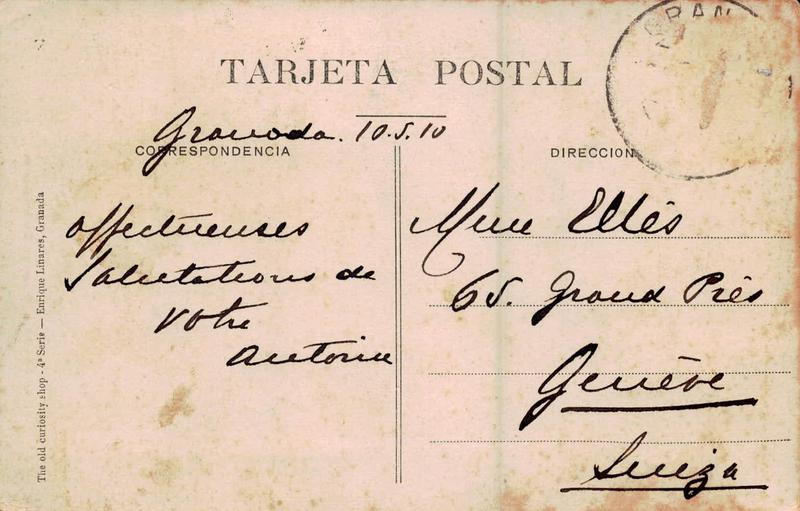 GRAN
TARJETA POSTAL
Granada. 10.5.10
CORRESPONDENCIA
DIRECCION
affectueuses
Salutations de
votre
Antoine
Mme Ellès
65. Grand Prés
Genève
Suiza
The old curiosity shop - 4ª Serie — Enrique Linares, Granada